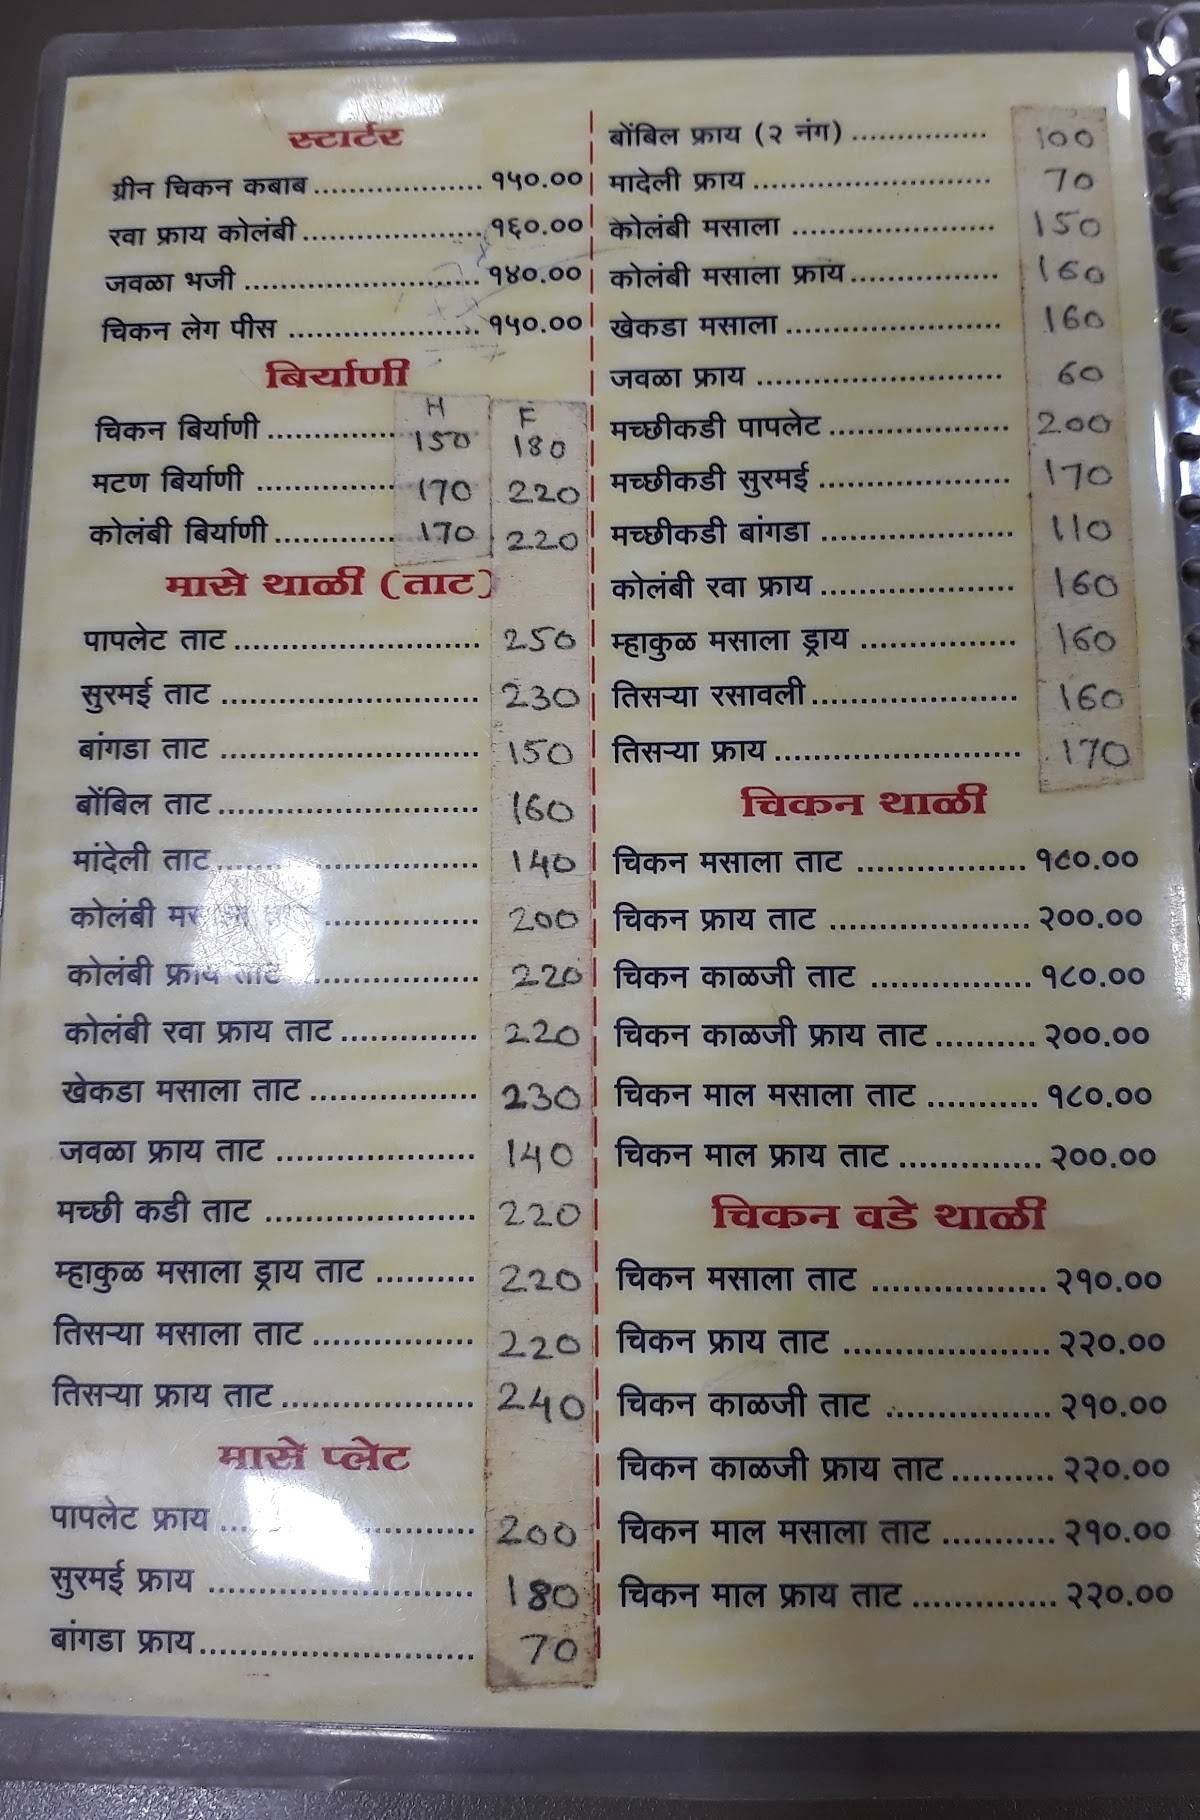 स्टार्टर
ग्रीन चिकन कबाब .................... १५०.००
रवा फ्राय कोलंबी ..................... १६०.००
जवळा भजी ........................... १४०.००
चिकन लेग पीस ...................... १५०.००
बिर्याणी
H F
चिकन बिर्याणी ............... 150 180
मटण बिर्याणी ................ 170 220
कोलंबी बिर्याणी .............. 170 220
मासे थाळी (ताट)
पापलेट ताट ............................. 250
सुरमई ताट .............................. 230
बांगडा ताट .............................. 150
बोंबिल ताट .............................. 160
मांदेली ताट .............................. 140
कोलंबी .................. 200
कोलंबी फ्राय ताट ................... 220
कोलंबी रवा फ्राय ताट ................ 220
खेकडा मसाला ताट ................... 230
जवळा फ्राय ताट ....................... 140
मच्छी कडी ताट ........................ 220
म्हाकुळ मसाला ड्राय ताट ........... 220
तिसऱ्या मसाला ताट ................... 220
तिसऱ्या फ्राय ताट ...................... 240
मासे प्लेट
पापलेट फ्राय ............................. 200
सुरमई फ्राय .............................. 180
बांगडा फ्राय ............................... 70
बोंबिल फ्राय (२ नंग) ................ 100
मादेली फ्राय ........................... 70
कोलंबी मसाला ....................... 150
कोलंबी मसाला फ्राय ................. 160
खेकडा मसाला ........................ 160
जवळा फ्राय ........................... 60
मच्छीकडी पापलेट .................... 200
मच्छीकडी सुरमई ..................... 170
मच्छीकडी बांगडा ..................... 110
कोलंबी रवा फ्राय ...................... 160
म्हाकुळ मसाला ड्राय ................. 160
तिसऱ्या रसावली ....................... 160
तिसऱ्या फ्राय ........................... 170
चिकन थाळी
चिकन मसाला ताट .................. १८०.००
चिकन फ्राय ताट ..................... २००.००
चिकन काळजी ताट ................. १८०.००
चिकन काळजी फ्राय ताट .......... २००.००
चिकन माल मसाला ताट ........... १८०.००
चिकन माल फ्राय ताट .............. २००.००
चिकन वडे थाळी
चिकन मसाला ताट .................. २१०.००
चिकन फ्राय ताट ..................... २२०.००
चिकन काळजी ताट ................. २१०.००
चिकन काळजी फ्राय ताट .......... २२०.००
चिकन माल मसाला ताट ........... २१०.००
चिकन माल फ्राय ताट .............. २२०.००